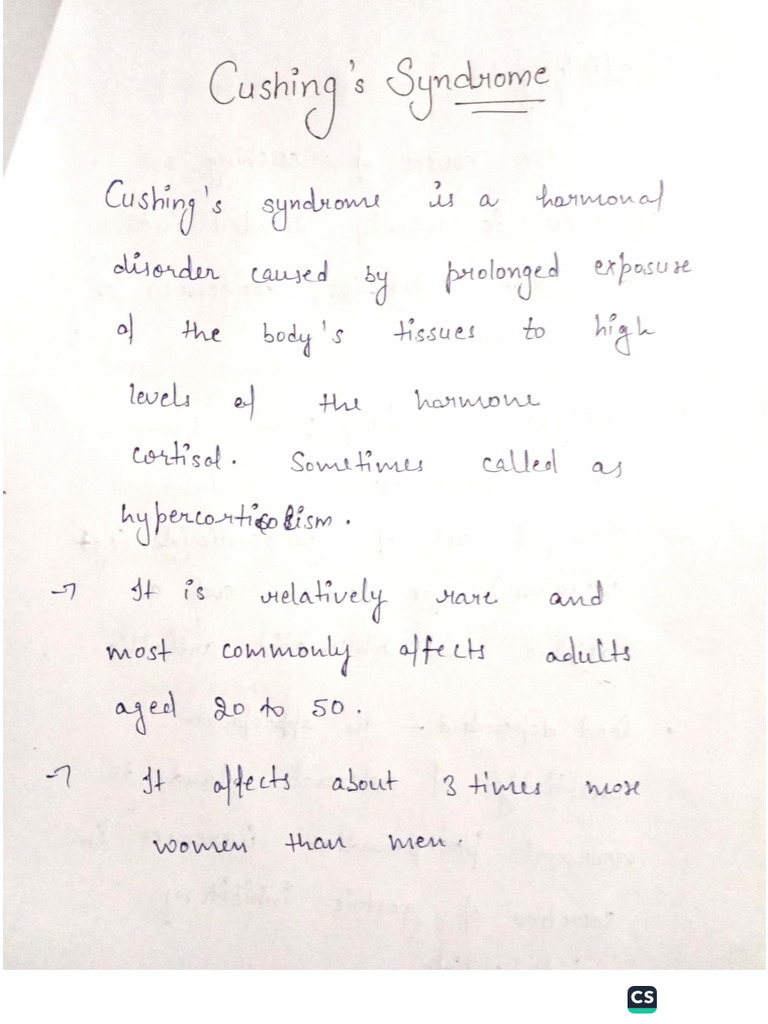 Cushing's Syndrome
Cushing's syndrome is a hormonal
disorder caused by prolonged exposure
of the body's tissues to high
levels of the hormone
cortisol. Sometimes called as
hypercortisolism.
→ It is relatively rare and
most commonly affects adults
aged 20 to 50.
→ It affects about 3 times more
women than men.
CS